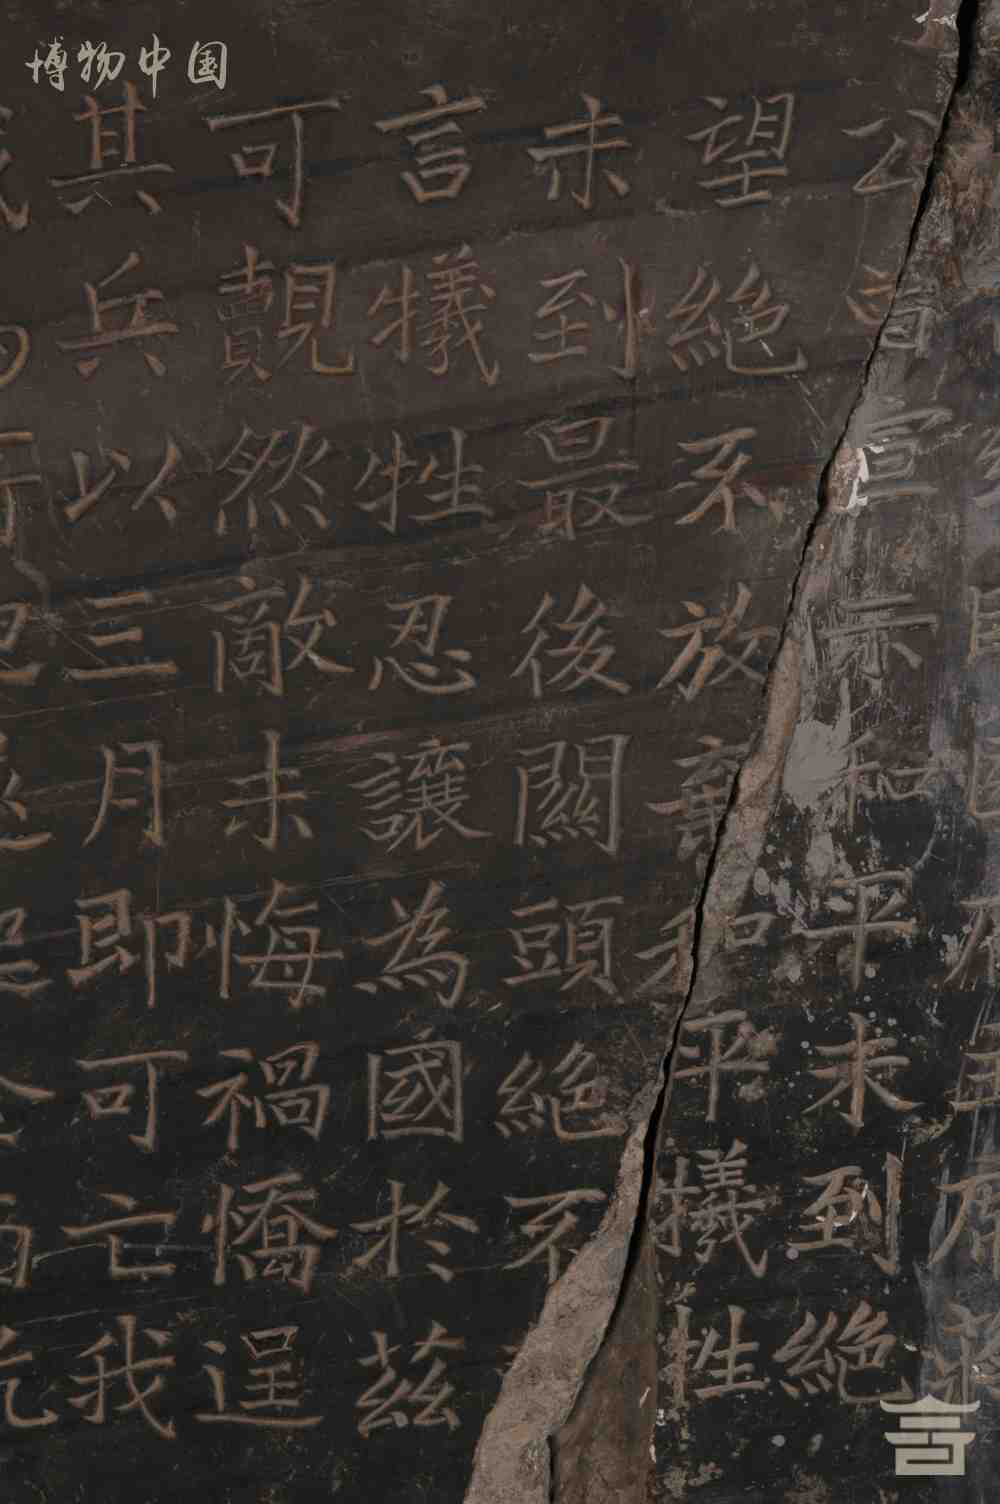 博物中国
公曾宣示和平未到絕
望絕不放棄和平犧牲
未到最後關頭絕不
言犧牲忍讓為國於茲
可覿然敵未悔禍憍逞
其兵以三月即可亡我